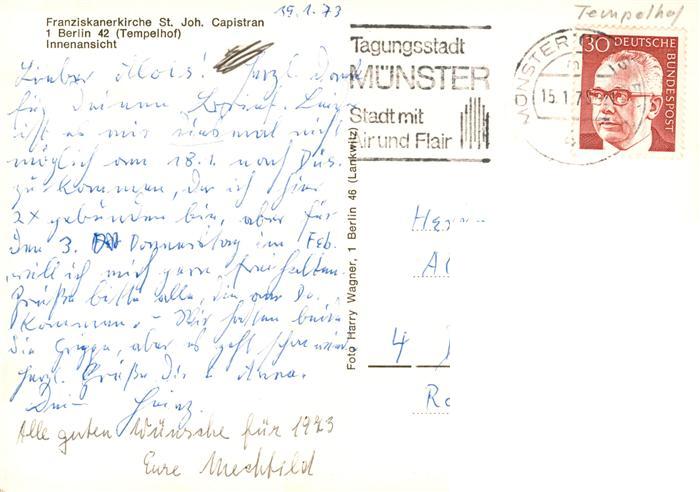 Franziskanerkirche St. Joh. Capistran
1 Berlin 42 (Tempelhof)
Innenansicht
15.1.73
Lieber Alois! Herzl. Dank
für Deinen Vorschl. Leider
ist es mir diesmal nicht
möglich am 18.1. nach Düs.
zu kommen, da ich hier
2x gebunden bin, aber für
den 3. Donnerstag im Feb.
will ich mich gern freihalten.
Grüße bitte alle, die am Do.
kommen. – Wir hatten beide
die Grippe, aber es geht schon wieder
herzl. Grüße Dir + Anna.
Dein Heinz.
Alle guten Wünsche für 1973
Eure Mechtild
Foto Harry Wagner, 1 Berlin 46 (Lankwitz)
Tagungsstadt
MÜNSTER
Stadt mit
Air und Flair
MÜNSTER
15.1.7
Tempelhof
30 DEUTSCHE
BUNDESPOST
Her
4